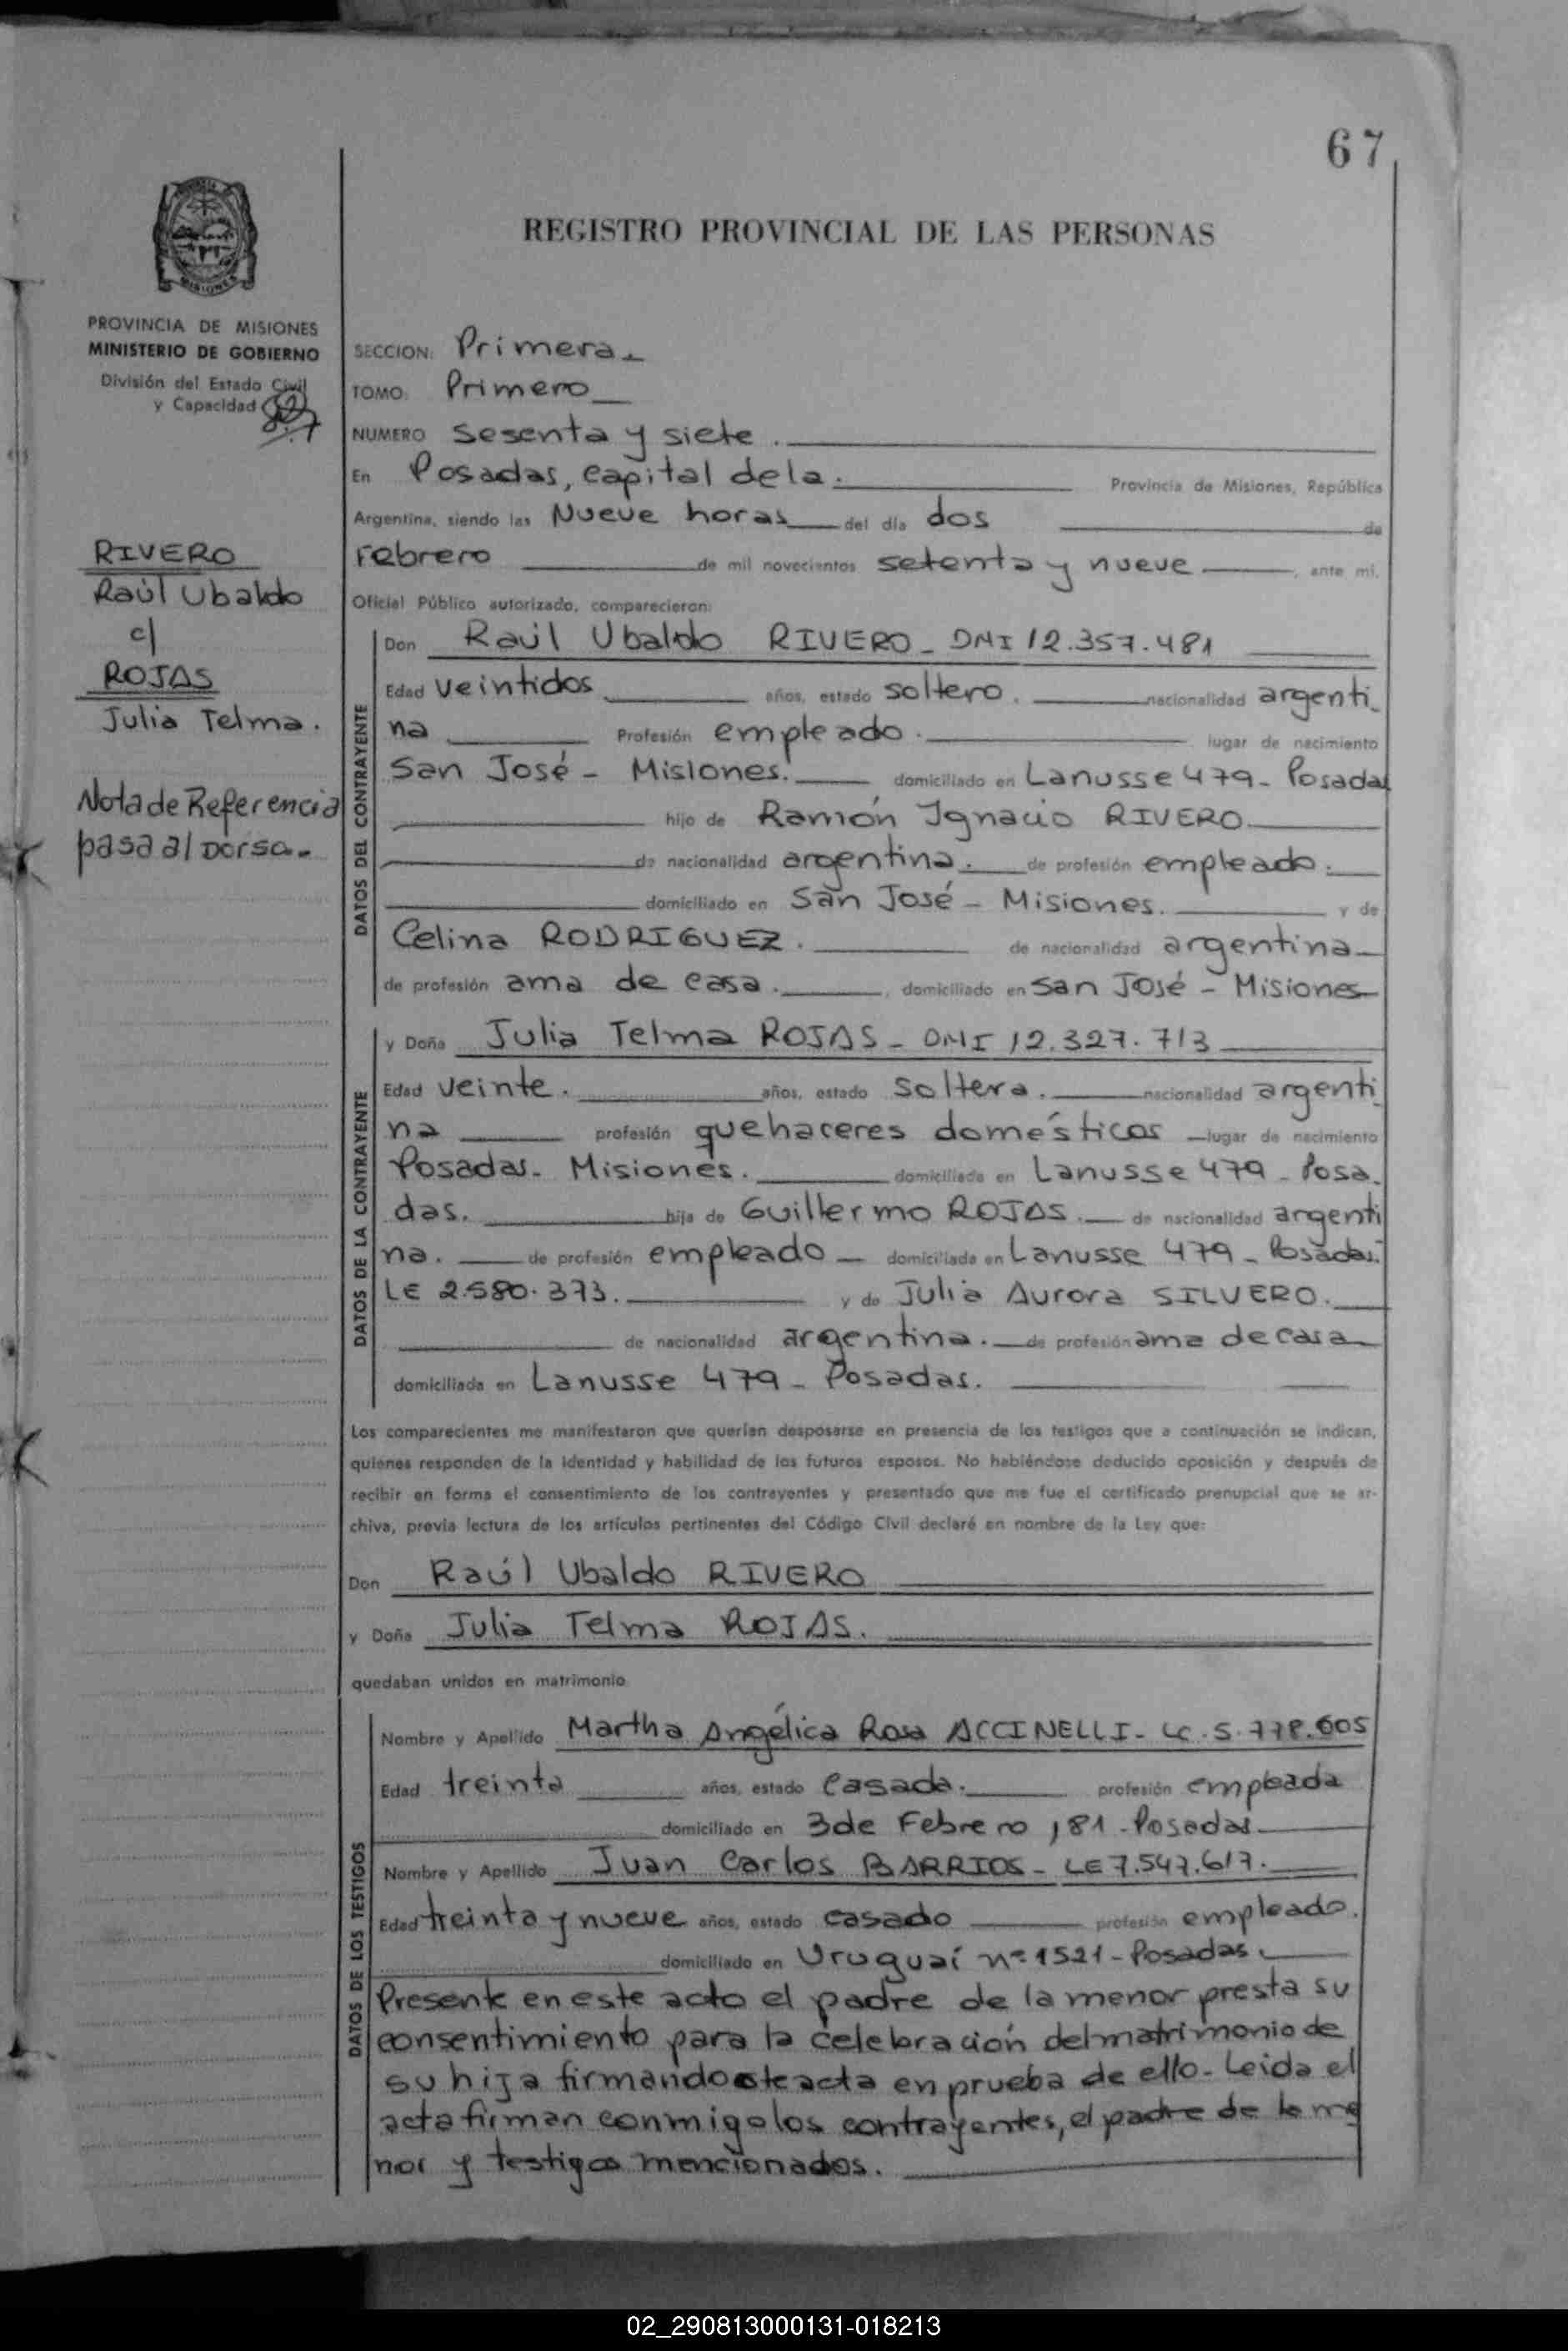 67
REGISTRO PROVINCIAL DE LAS PERSONAS
PROVINCIA DE MISIONES
MINISTERIO DE GOBIERNO
División del Estado Civil
y Capacidad
RIVERO
Raúl Ubaldo
c/
ROJAS
Julia Telma.
Nota de Referencia
pasa al Dorso.-
SECCION: Primera_
TOMO: Primero
NUMERO sesenta y siete.
En Posadas, capital de la. Provincia de Misiones, República
Argentina, siendo las Nueve horas del día dos de
Febrero de mil novecientos setenta y nueve, ante mí,
Oficial Público autorizado, comparecieron:
DATOS DEL CONTRAYENTE
Don Raúl Ubaldo RIVERO_ DNI 12.357.481
Edad veintidos años, estado soltero. nacionalidad argenti_
na Profesión empleado. lugar de nacimiento
San José - Misiones. domiciliado en Lanusse 479_ Posadas
hijo de Ramón Ignacio RIVERO
de nacionalidad argentina. de profesión empleado.
domiciliado en San José - Misiones. y de
Celina RODRIGUEZ. de nacionalidad argentina
de profesión ama de casa., domiciliado en San José - Misiones
DATOS DE LA CONTRAYENTE
y Doña Julia Telma ROJAS_ DNI 12.327.713
Edad veinte. años, estado soltera. nacionalidad argenti_
na profesión quehaceres domésticos lugar de nacimiento
Posadas_ Misiones. domiciliada en Lanusse 479_ Posa_
das. hija de Guillermo ROJAS. de nacionalidad argenti
na. de profesión empleado domiciliada en Lanusse 479_ Posadas.
LE 2.580.373. y de Julia Aurora SILVERO.
de nacionalidad argentina. de profesión ama de casa
domiciliada en Lanusse 479_ Posadas.
Los comparecientes me manifestaron que querían desposarse en presencia de los testigos que a continuación se indican,
quienes responden de la identidad y habilidad de los futuros esposos. No habiéndose deducido oposición y después de
recibir en forma el consentimiento de los contrayentes y presentado que me fue el certificado prenupcial que se ar-
chiva, previa lectura de los artículos pertinentes del Código Civil declaré en nombre de la Ley que:
Don Raúl Ubaldo RIVERO
y Doña Julia Telma ROJAS.
quedaban unidos en matrimonio
DATOS DE LOS TESTIGOS
Nombre y Apellido Martha Angélica Rosa ACCINELLI_ LC.5.778.605
Edad treinta años, estado casada. profesión empleada
domiciliado en 3 de Febrero 181 - Posadas
Nombre y Apellido Juan Carlos BARRIOS_ LE 7.547.617.
Edad treinta y nueve años, estado casado profesión empleado.
domiciliado en Uruguaí nº 1521 - Posadas.
Presente en este acto el padre de la menor presta su
consentimiento para la celebración del matrimonio de
su hija firmando este acta en prueba de ello_ Leida el
acta firman conmigo los contrayentes, el padre de la me
nor y testigos mencionados.
02_290813000131-018213